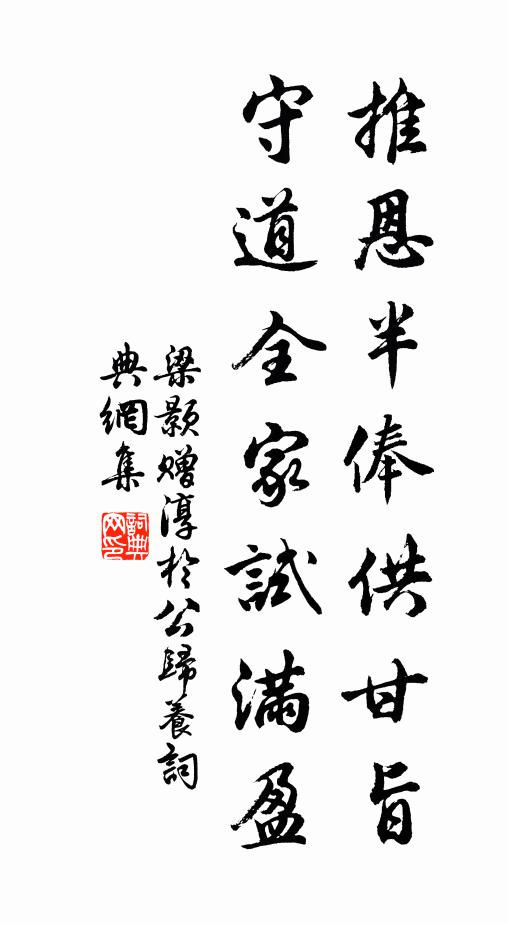 推恩半俸供甘旨
守道全家試滿盈
梁顥贈淳於公歸養詞
典網集
詞典
网印